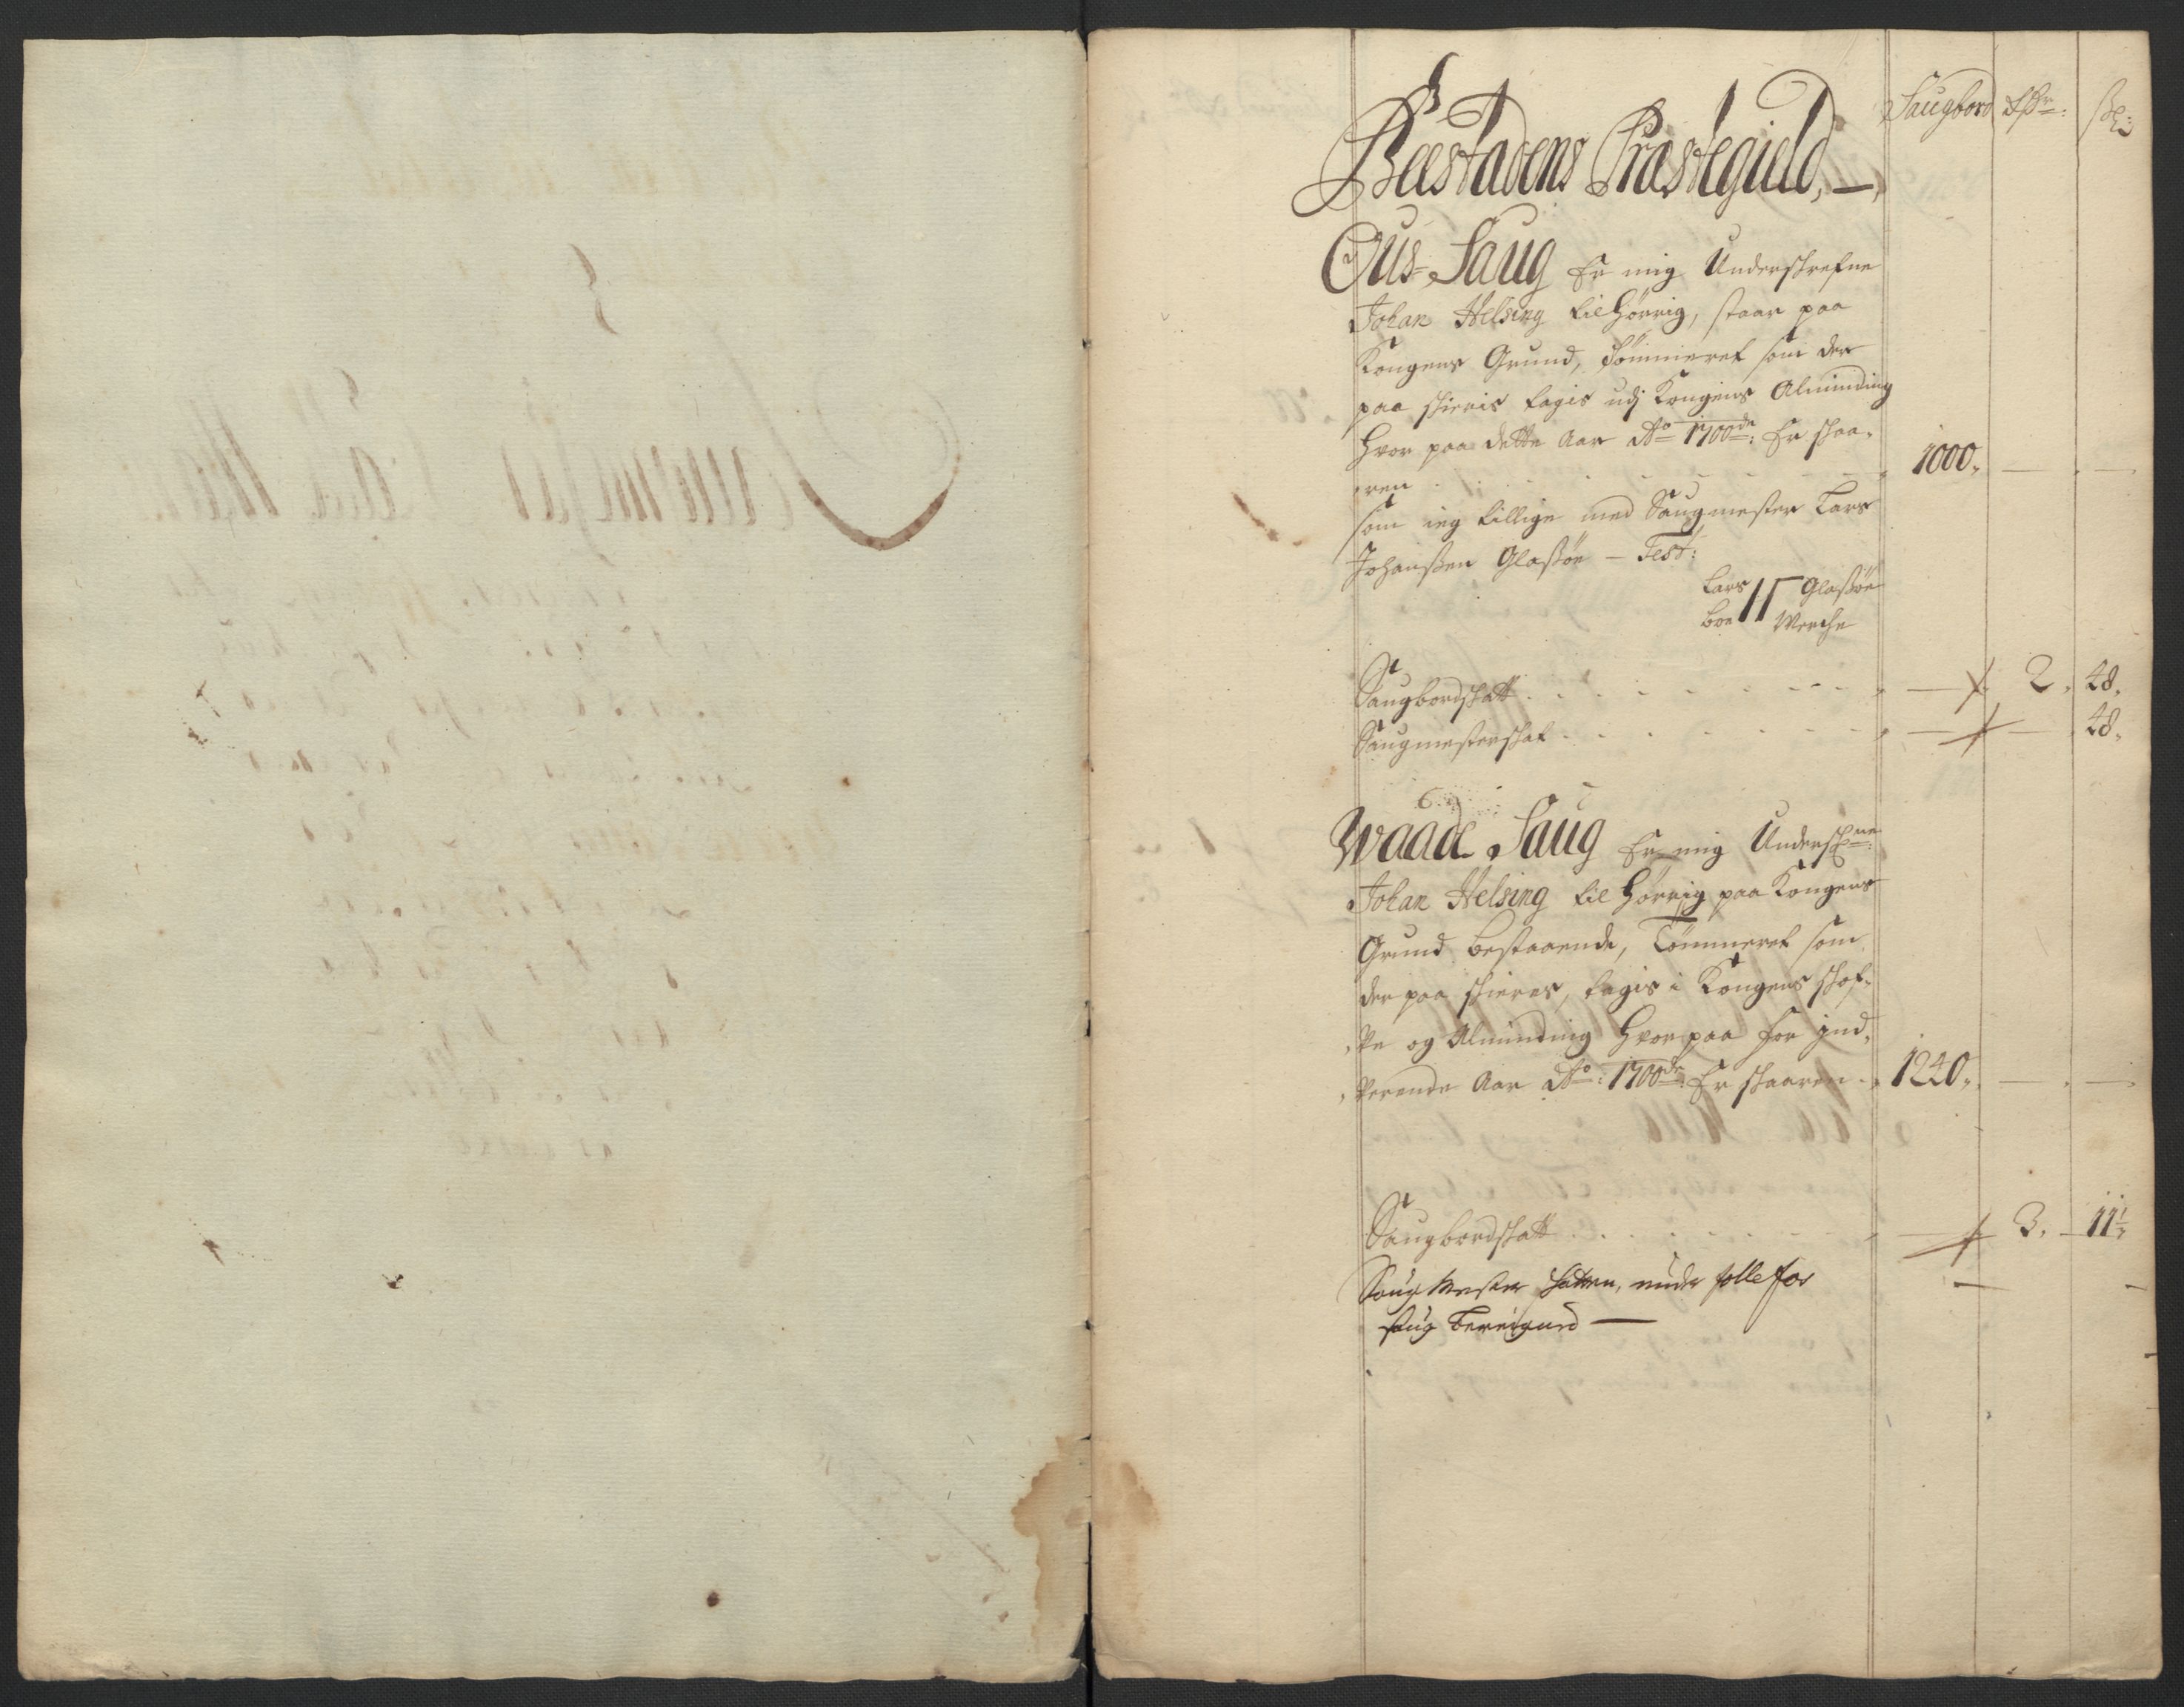 Saugbord
Beestadens Præstegield, —
Ous Saug Er mig Underskrefne
Johan Helsing tilhørrig, staar paa
Kongens Grund, Tømmeret som der
paa skieris tagis udj Kongens Alminding
Hvor paa dette Aar Ao 1700de: Er skaa-
ren 1000,
som ieg tillige med Saugmester Lars
Johanßen Glaßøe — Test:
Lars Glaßøe
boe Merche
Saugbordskatt 2, 48,
Saugmesterskat 48,
Waade Saug Er mig Undersne:
Johan Helsing til hørrig paa Kongens
Grund bestaaende, Tømmeret som
der paa skieres, tagis i Kongens skof-
ve og Alminding Hvorpaa for ind-
verende Aar Ao: 1700de: Er skaaren 1240,
Saugbordskatt 3. 11½
Saug Mester
Saug